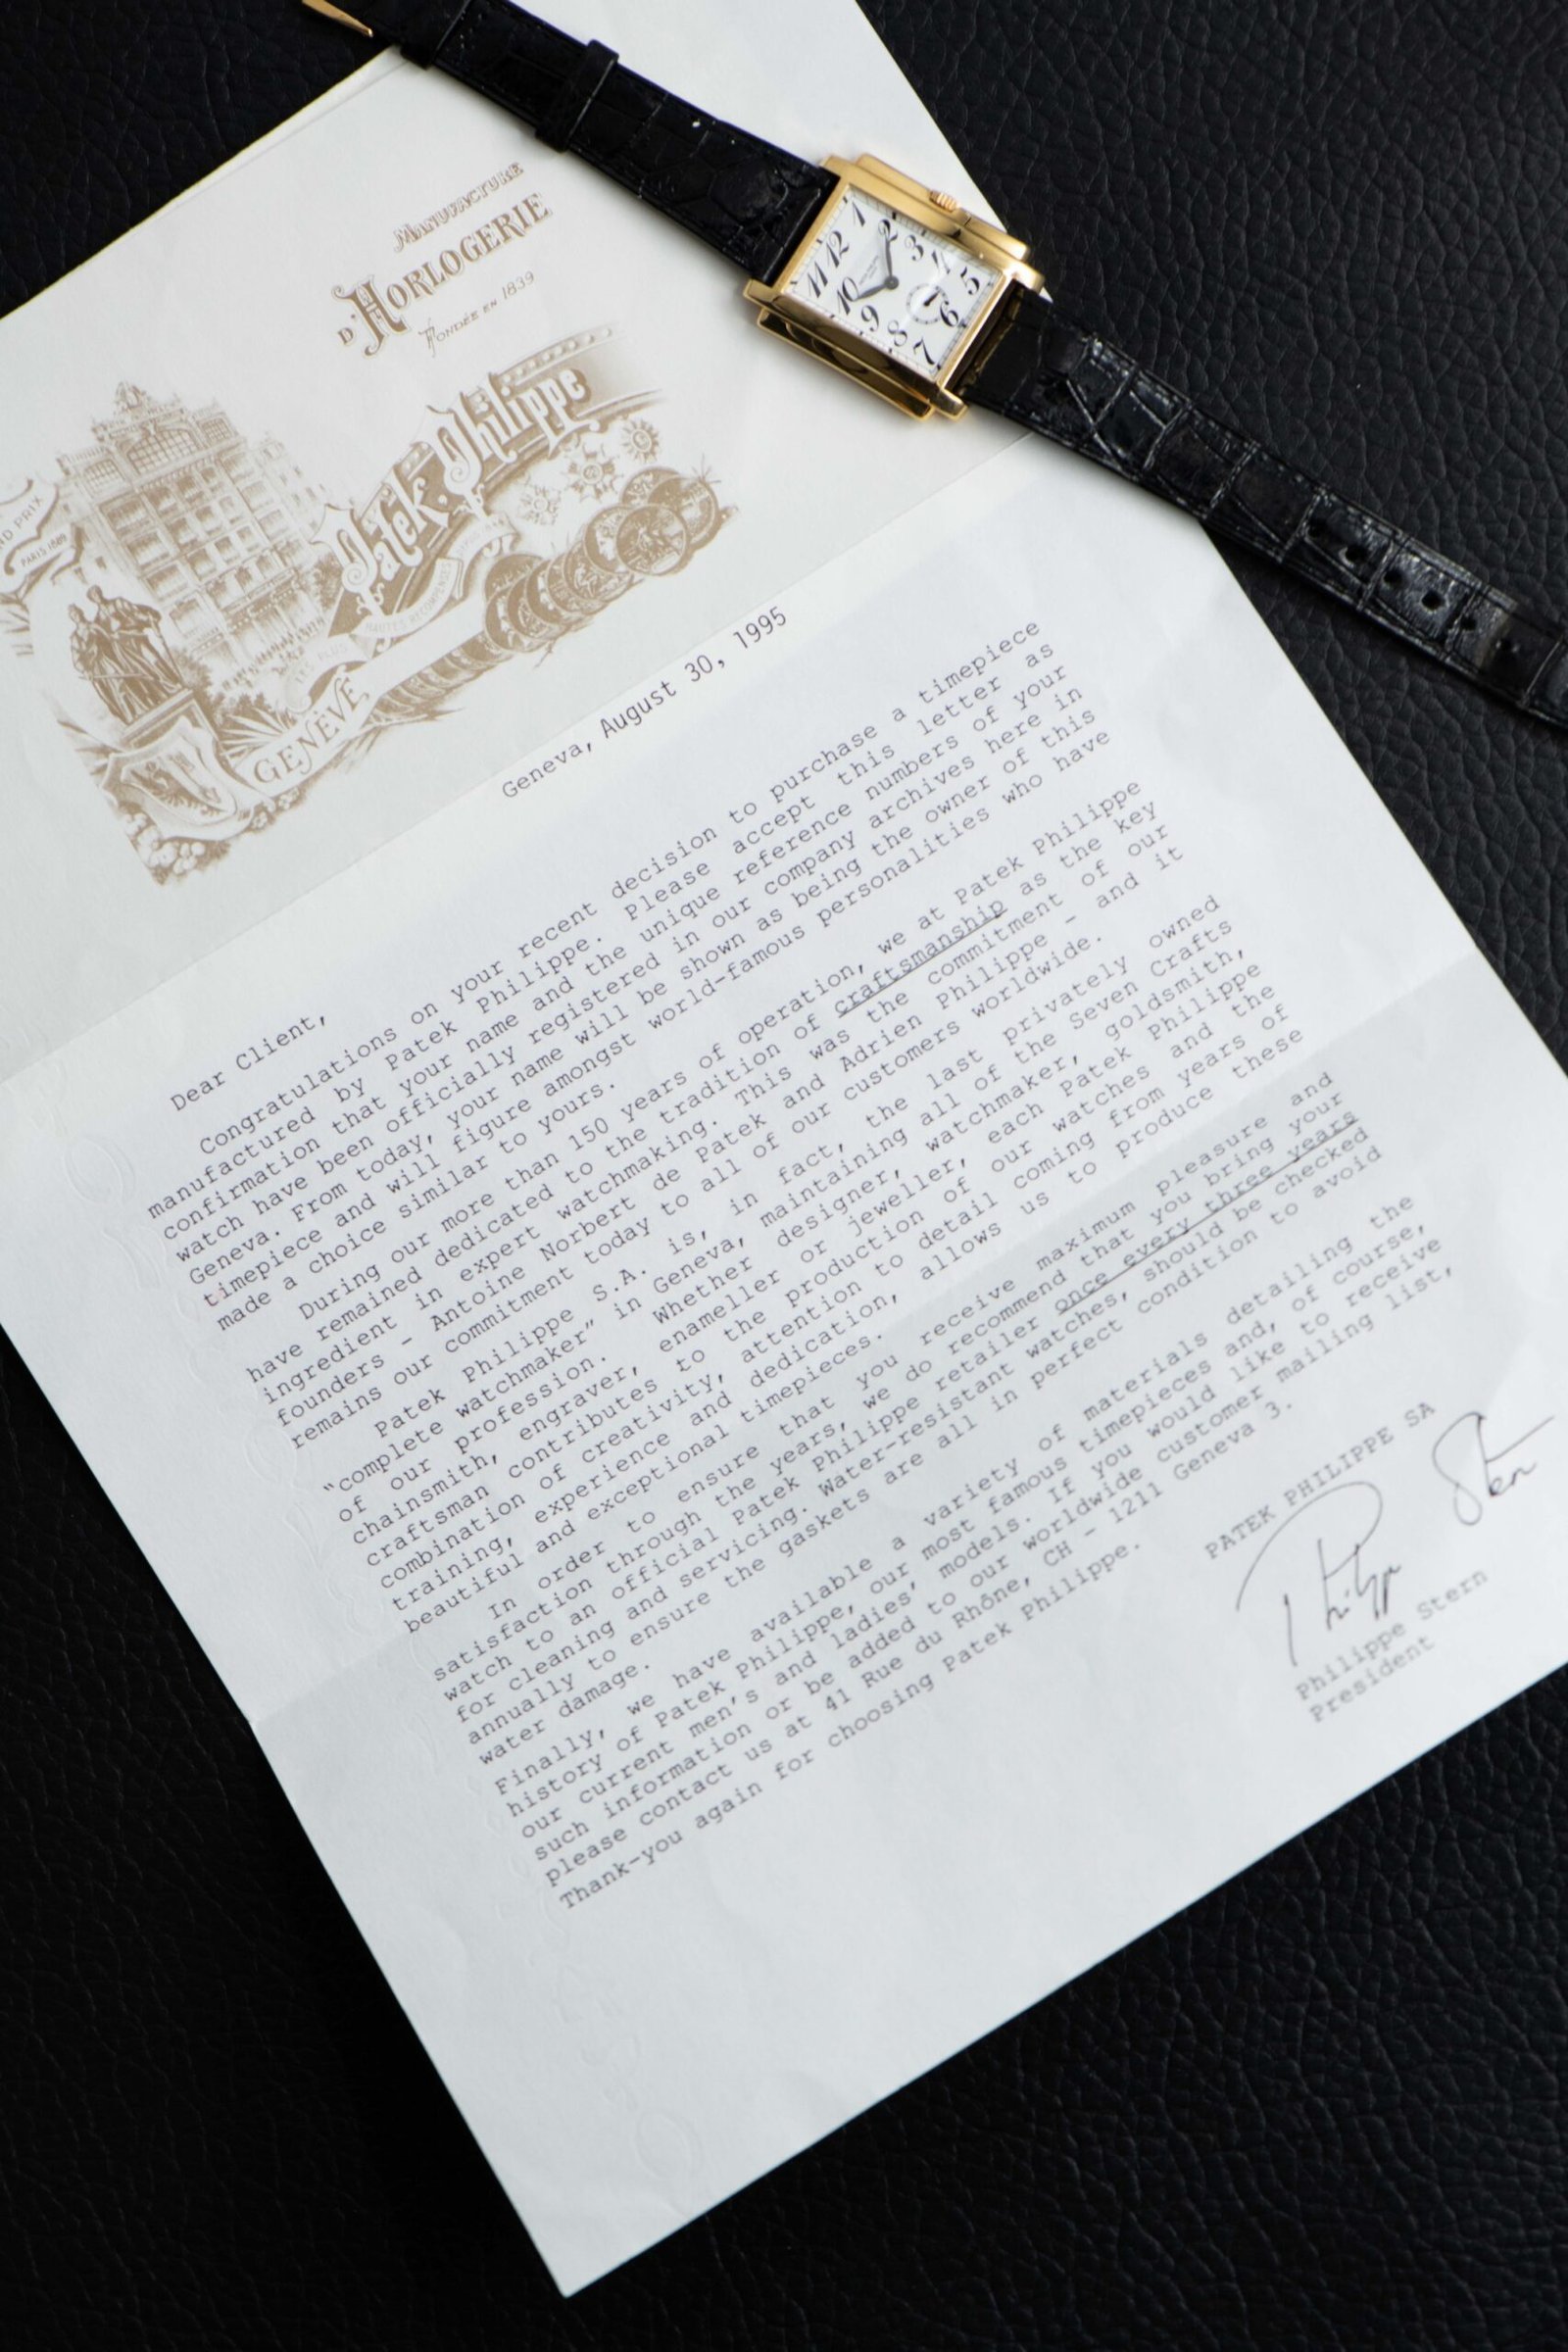 MANUFACTURE
D'HORLOGERIE
FONDÉE EN 1839
Patek Philippe
PARIS 1889
GENÈVE
1
2
3
4
5
6
7
8
9
10
11
12
Geneva, August 30, 1995
Dear Client,
Congratulations on your recent decision to purchase a timepiece
manufactured by Patek Philippe. Please accept this letter as
confirmation that your name and the unique reference numbers of your
watch have been officially registered in our company archives here in
Geneva. From today, your name will be shown as being the owner of this
timepiece and will figure amongst world-famous personalities who have
made a choice similar to yours.
During our more than 150 years of operation, we at Patek Philippe
have remained dedicated to the tradition of craftsmanship as the key
ingredient in expert watchmaking. This was the commitment of our
founders - Antoine Norbert de Patek and Adrien Philippe - and it
remains our commitment today to all of our customers worldwide.
Patek Philippe S.A. is, in fact, the last privately owned
"complete watchmaker" in Geneva, maintaining all of the Seven Crafts
of our profession. Whether designer, watchmaker, goldsmith,
chainsmith, engraver, enameller or jeweller, each Patek Philippe
craftsman contributes to the production of our watches and the
combination of creativity, attention to detail coming from years of
training, experience and dedication, allows us to produce these
beautiful and exceptional timepieces.
In order to ensure that you receive maximum pleasure and
satisfaction through the years, we do recommend that you bring your
watch to an official Patek Philippe retailer once every three years
for cleaning and servicing. Water-resistant watches, should be checked
annually to ensure the gaskets are all in perfect condition to avoid
water damage.
Finally, we have available a variety of materials detailing the
history of Patek Philippe, our most famous timepieces and, of course,
our current men's and ladies' models. If you would like to receive
such information or be added to our worldwide customer mailing list,
please contact us at 41 Rue du Rhône, CH - 1211 Geneva 3.
Thank-you again for choosing Patek Philippe.
PATEK PHILIPPE SA
Philippe Stern
President